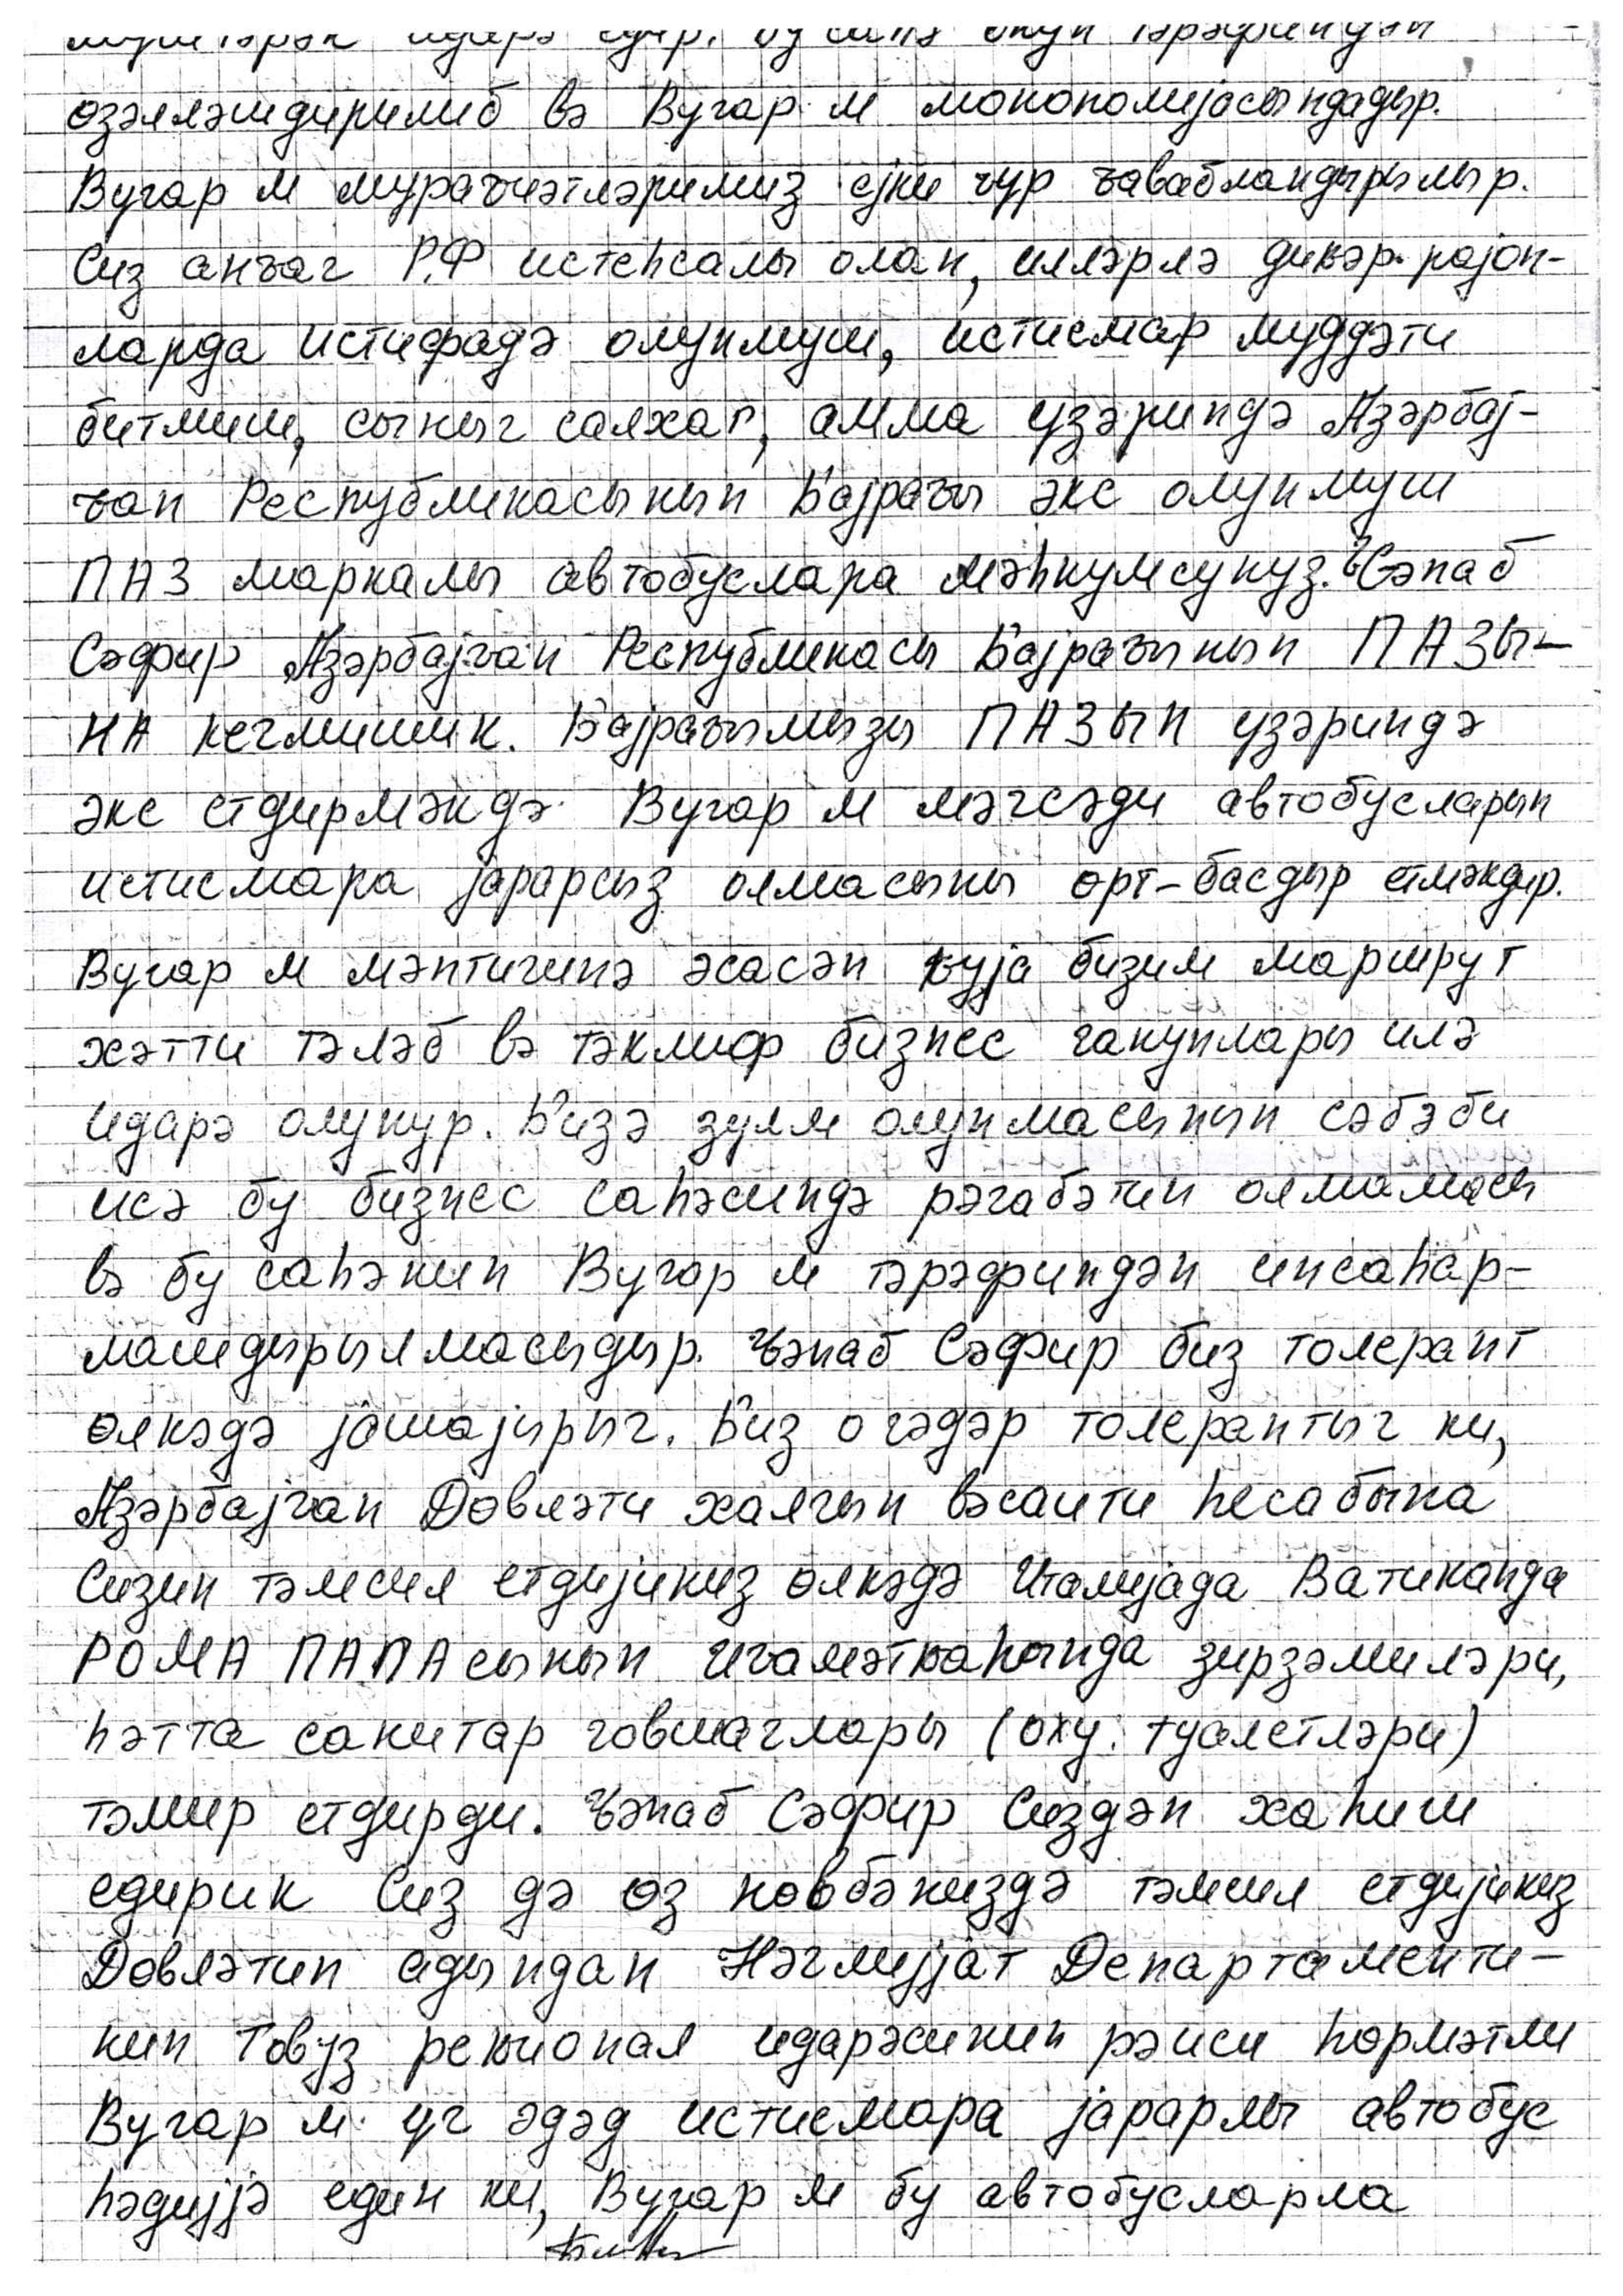 өзәлләшдирилиб вә Вугар м монополијасындадыр.
Вугар м мурачиәтләримиз ејни чур чавабландырылыр.
Сиз анчаг Р.Ф истеһсалы олан, илләрлә дикәр рајон-
ларда истифадә олунмуш, истисмар муддәти
битмиш, сыныг салхаг, амма узәриндә Азәрбај-
чан Республикасынын Бајрағы әкс олунмуш
ПАЗ маркалы автобуслара мәһкумсунуз. Чәнаб
Сәфир Азәрбајчан Республикасы Бајрағынын ПАЗЫ-
НА кечмишик. Бајрағымызы ПАЗЫН узәриндә
әкс етдирмәкдә Вугар м мәгсәди автобусларын
истисмара јарарсыз олмасыны өрт-басдыр етмәкдир.
Вугар м мәнтигинә әсасән куја бизим маршрут
хәтти тәләб вә тәклиф бизнес ганунлары илә
идарә олунур. Бизә зулм олунмасынын сәбәби
исә бу бизнес саһәсиндә рәгабәтин олмамасы
вә бу саһәнин Вугар м тәрәфиндән инсаһар-
лашдырылмасыдыр. Чәнаб Сәфир биз толерант
өлкәдә јашајырыг. Биз о гәдәр толерантыг ки,
Азәрбајчан Дөвләти халгын вәсаити һесабына
Сизин тәмсил етдијиниз өлкәдә Италијада Ватиканда
РОМА ПАПАсынын игамәткаһында зирзәмиләри,
һәтта санитар говшаглары (оху: туалетләри)
тәмир етдирди. Чәнаб Сәфир Сиздән хаһиш
едирик Сиз дә өз нөвбәниздә тәмсил етдијиниз
Дөвләтин адындан Нәглијјат Департаменти-
нин Товуз рекионал идарәсинин рәиси һөрмәтли
Вугар м уч әдәд истисмара јарарлы автобус
һәдијјә един ки, Вугар м бу автобусларла